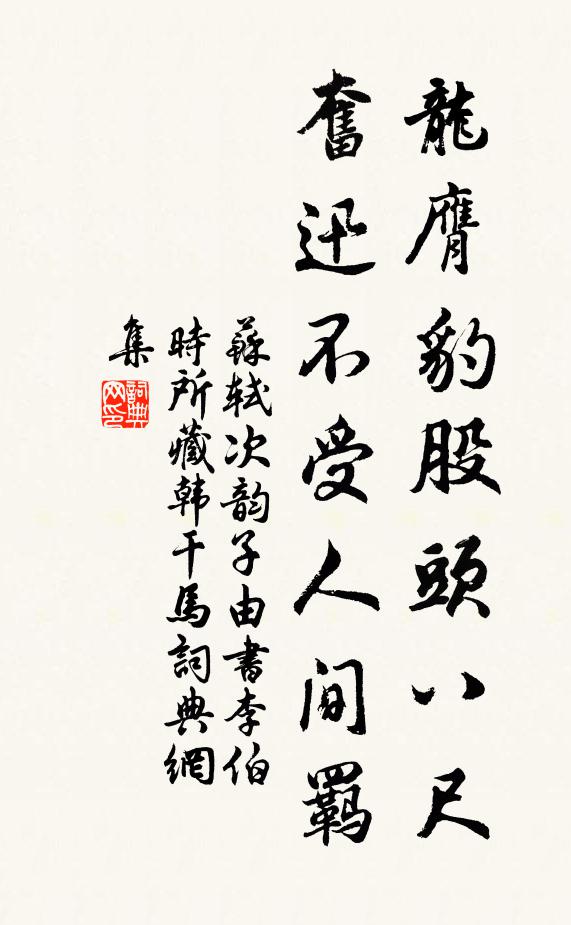 龍膺豹股頭八尺
奮迅不受人間羈
蘇軾次韵子由書李伯
時所藏韩干馬詞典網
集
詞典
网印